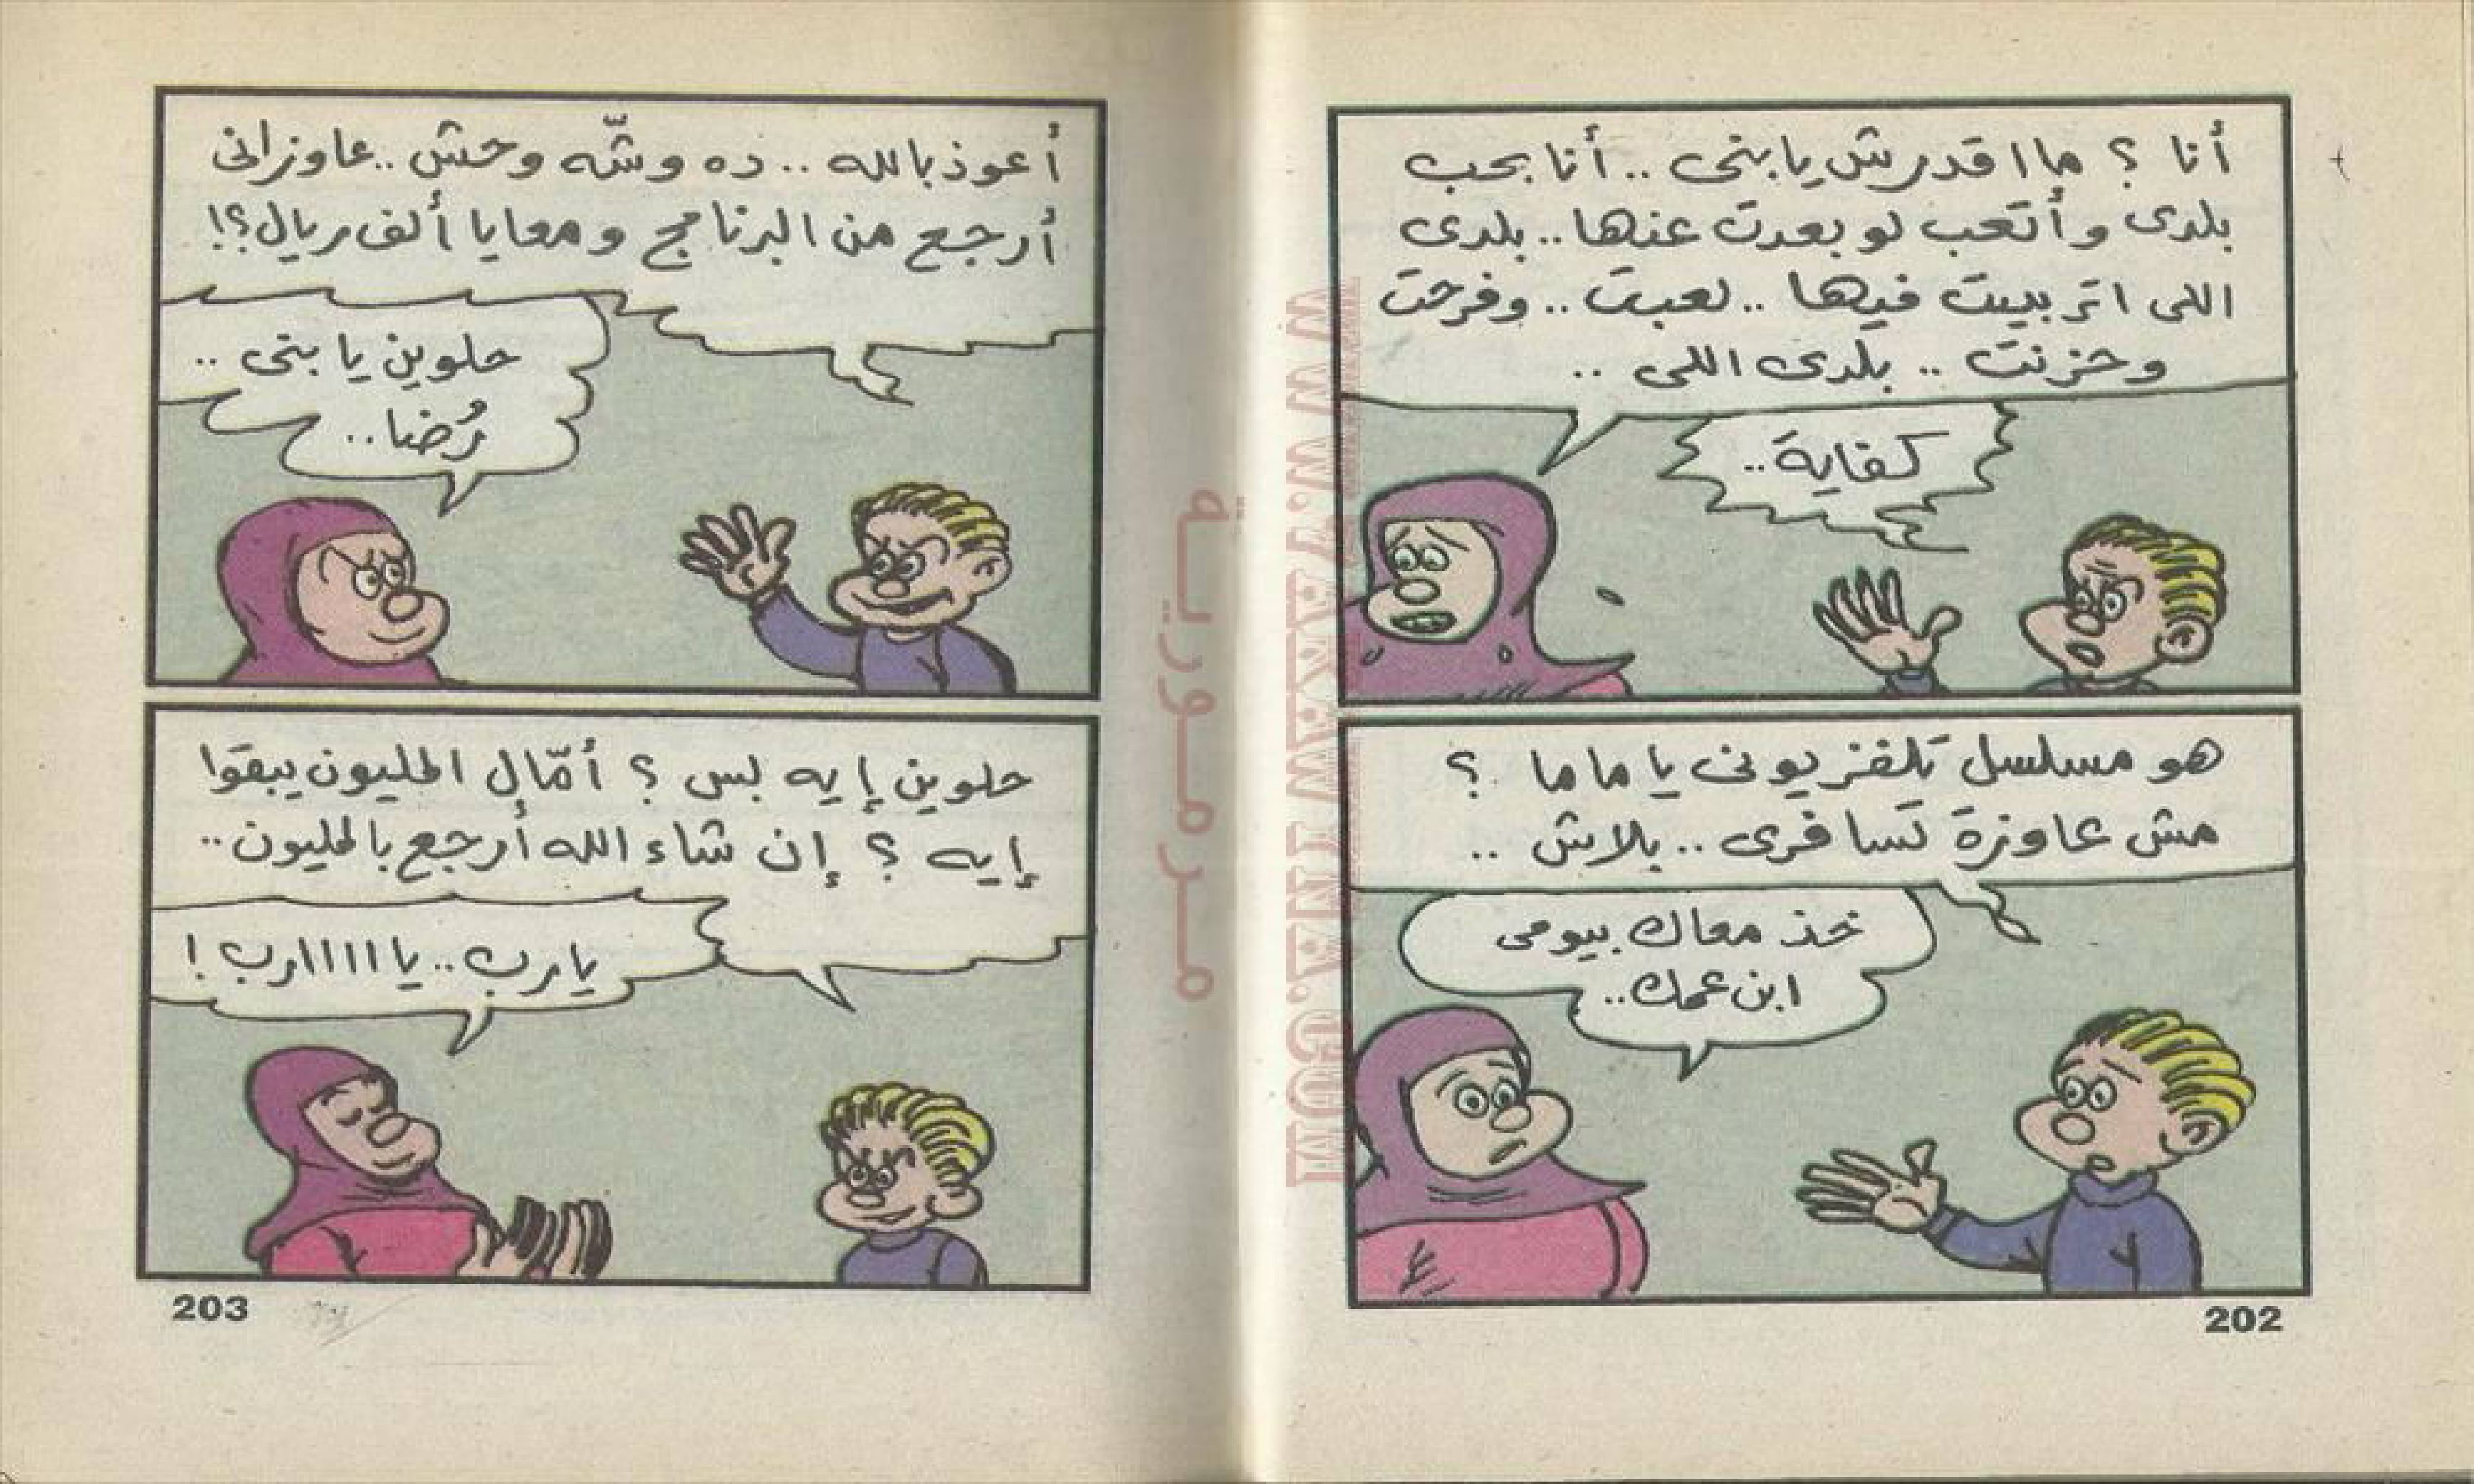 أنا ؟ ما اقدرش يا بنى .. أنا بحب
بلدى وأتعب لو بعدت عنها .. بلدى
اللى اتربيت فيها .. لعبت .. وفرحت
وحزنت .. بلدى اللى ..
كفاية ..
هو مسلسل تلفزيونى يا ماما ؟
مش عاوزة تسافرى .. بلاش ..
خذ معاك بيومى
ابن عمك ..
202
أعوذ بالله .. ده وشّه وحش .. عاوزانى
أرجع من البرنامج ومعايا ألف ريال ؟!
حلوين يا بنى ..
رُضا ..
حلوين إيه بس ؟ أمّال المليون يبقوا
إيه ؟ إن شاء الله أرجع بالمليون ..
يارب .. يا اااارب !
203
مرمورية